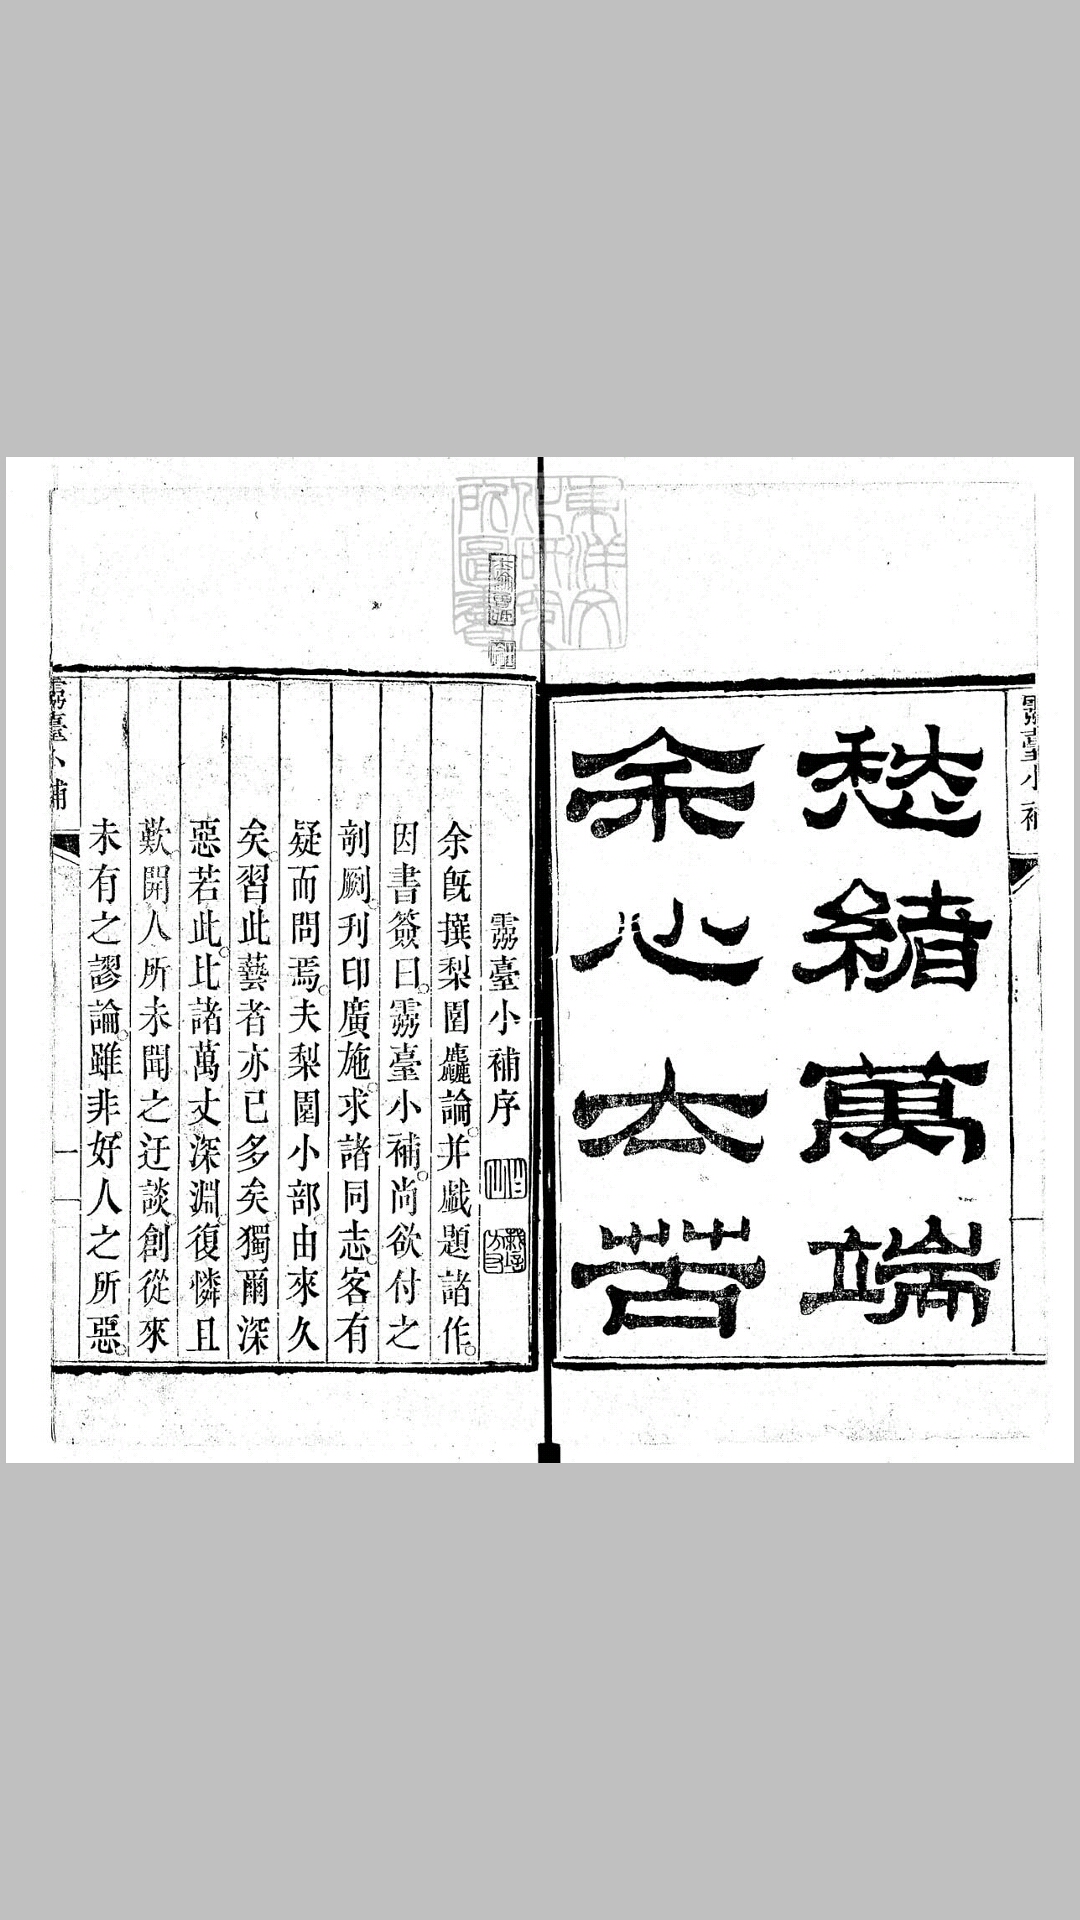 靈臺小補
愁緒萬端
余心太苦
東洋文
化研究
所圖書
靈臺小補序
余旣撰梨園麤論。并戲題諸作。
因書簽曰。靈臺小補。尚欲付之
剞劂。刊印廣施。求諸同志。客有
疑而問焉。夫梨園小部。由來久
矣。習此藝者亦已多矣。獨爾深
惡若此。比諸萬丈深淵。復憐且
歎。開人所未聞之迂談。創從來
未有之謬論。雖非好人之所惡。
靈臺小補
一